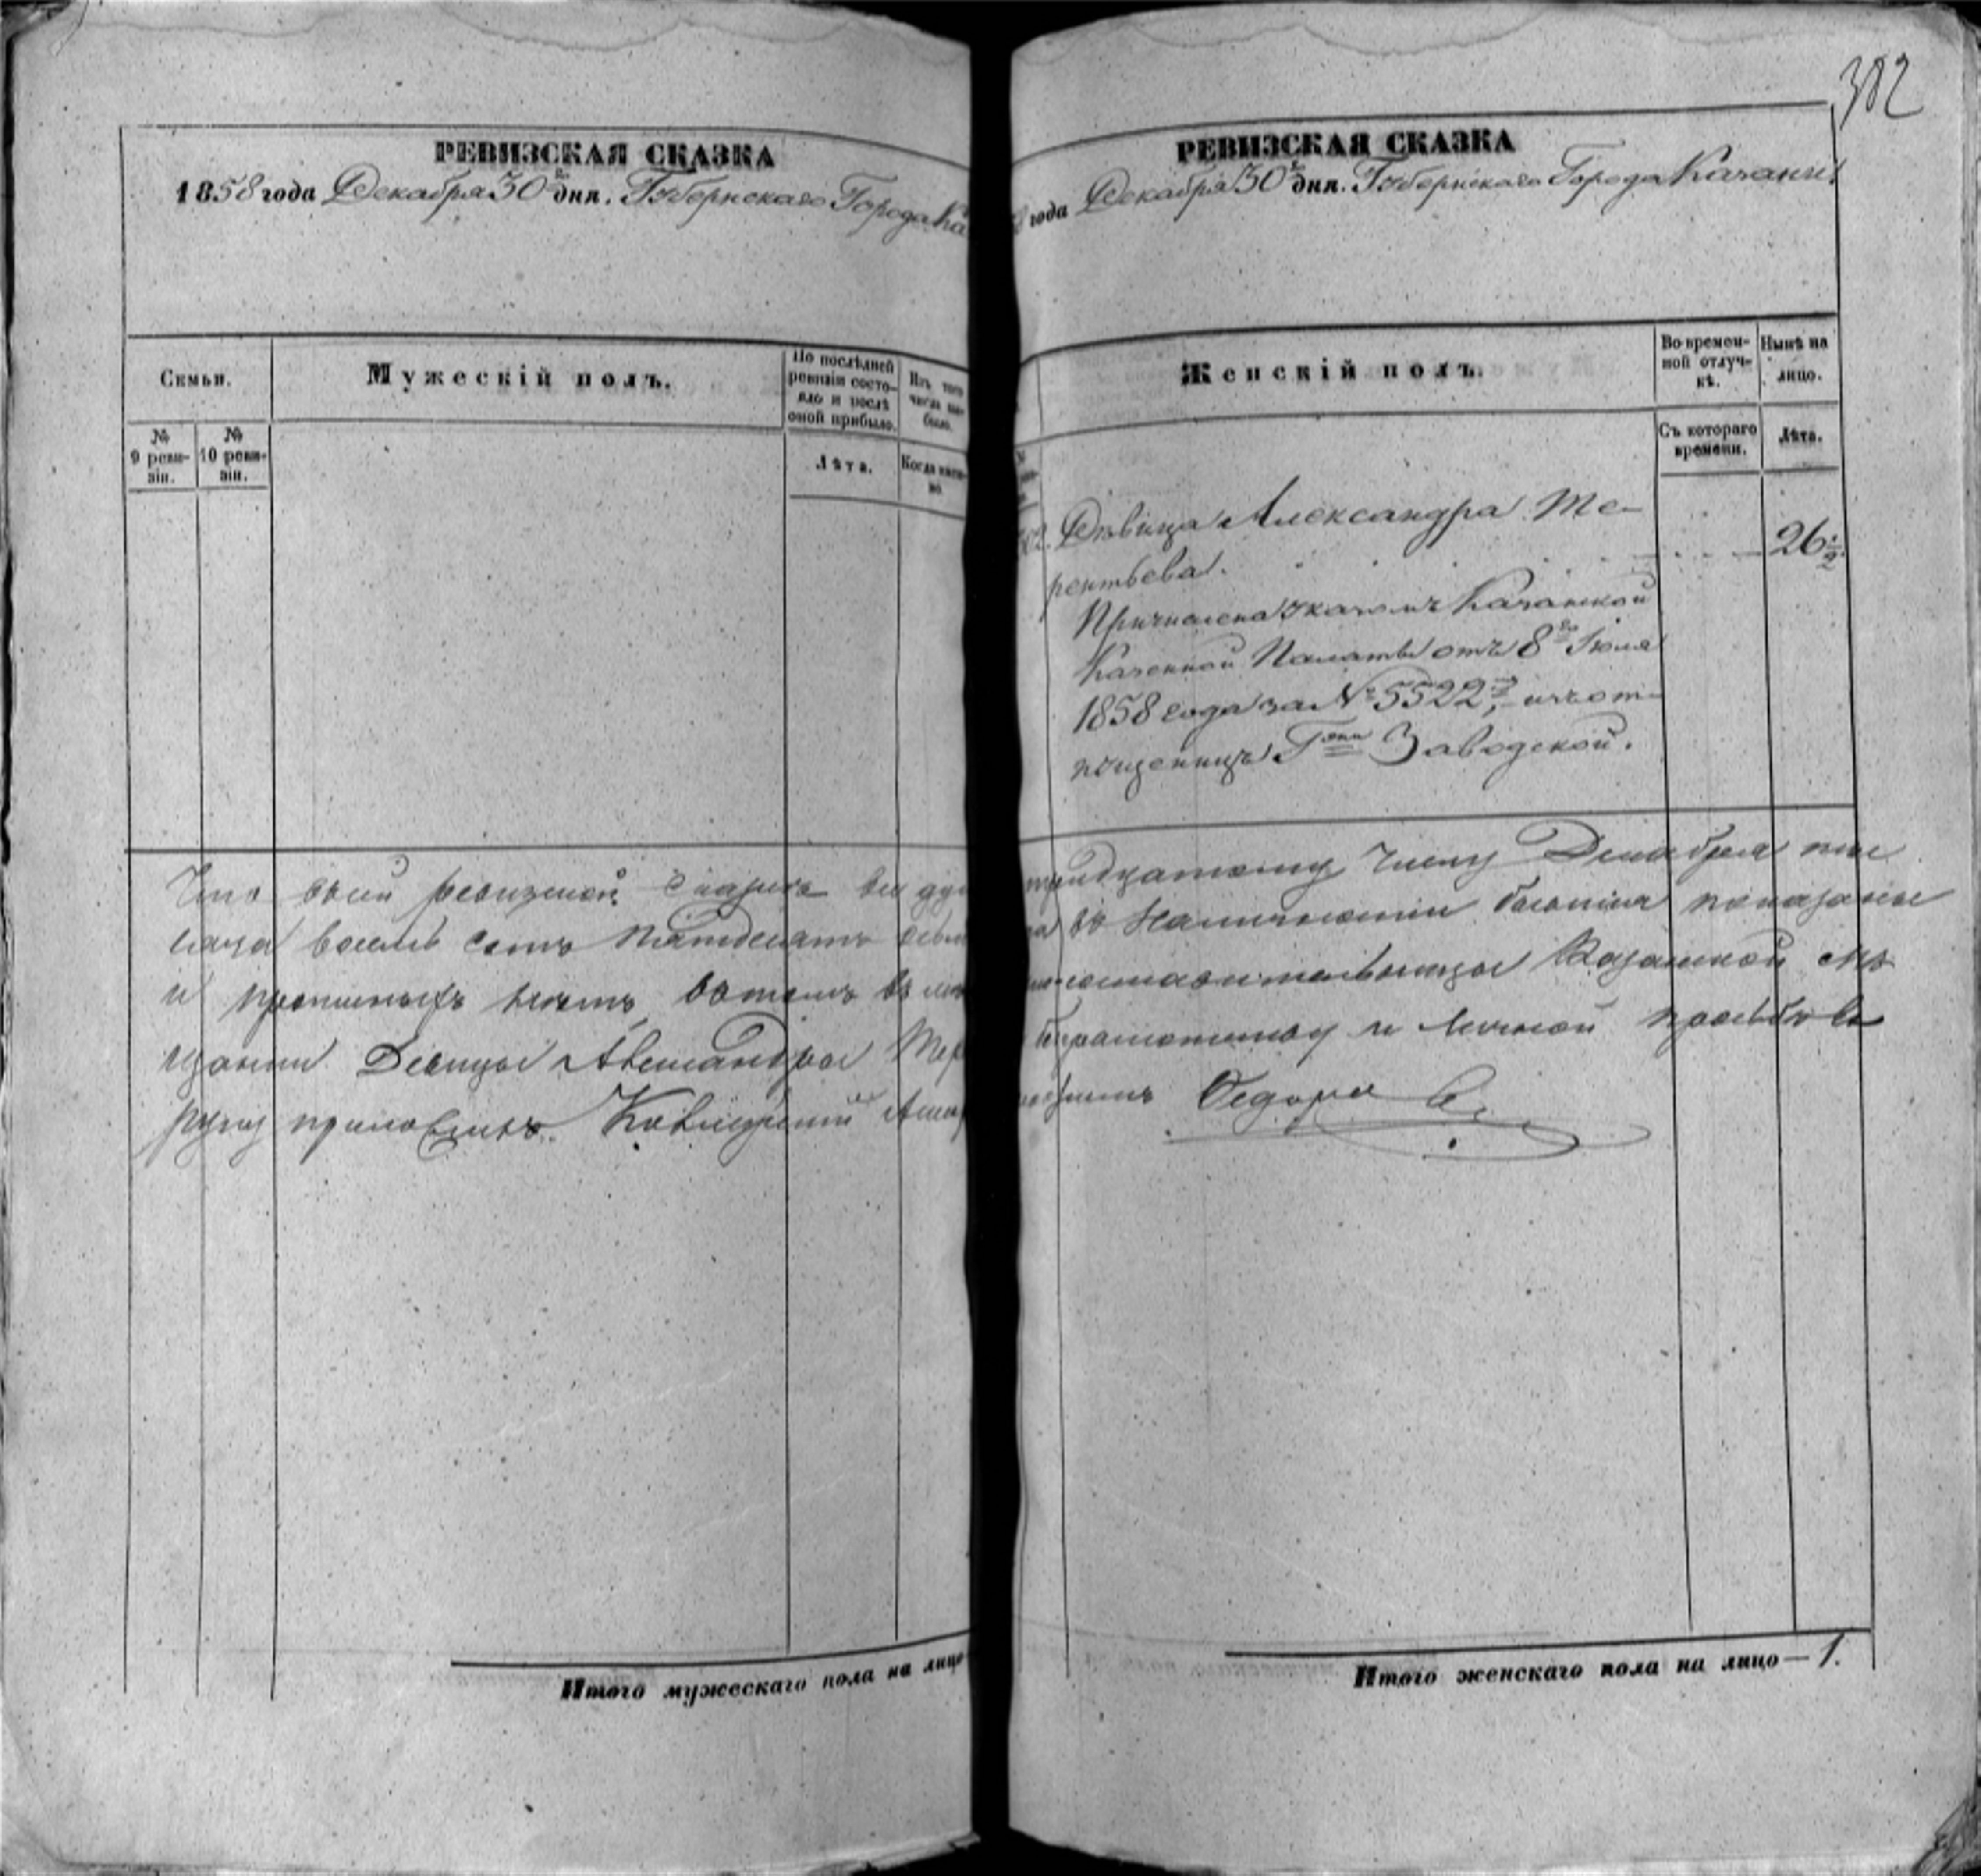 РЕВИЗСКАЯ СКАЗКА
1858 года Декабря 30 го дня. Губернскаго Города Ка
Семьи.
Мужескій полъ.
По послѣдней ревизіи состояло и послѣ оной прибыло.
Изъ того числа выбыло.
№ 9 ревизіи.
№ 10 ревизіи.
Лѣта.
Когда именно.
Что въ сей ревизской сказкѣ все душ
сяча восемь сотъ пятдесятъ
и прописныхъ нѣтъ, въ томъ
щанки Девицы Александры Тер
руку приложилъ.
Итого мужескаго пола на лицо
382
РЕВИЗСКАЯ СКАЗКА
года Декабря 30 го дня. Губернскаго Города Казани.
Женскій полъ.
Во временной отлучкѣ.
Нынѣ на лицо.
Съ котораго времени.
Лѣта.
Дѣвица Александра Те-
рентьева.
26 1/2.
Причислена указомъ Казанской
Казенной Палаты отъ 8 го Іюля
1858 года за № 5522, изъ от-
пущенницъ Г жи Заводской.
тридцатому числу Декабря
въ наличности показаны
Казанской мѣ
безграмотной и личной просьбѣ
Федоръ
Итого женскаго пола на лицо — 1.